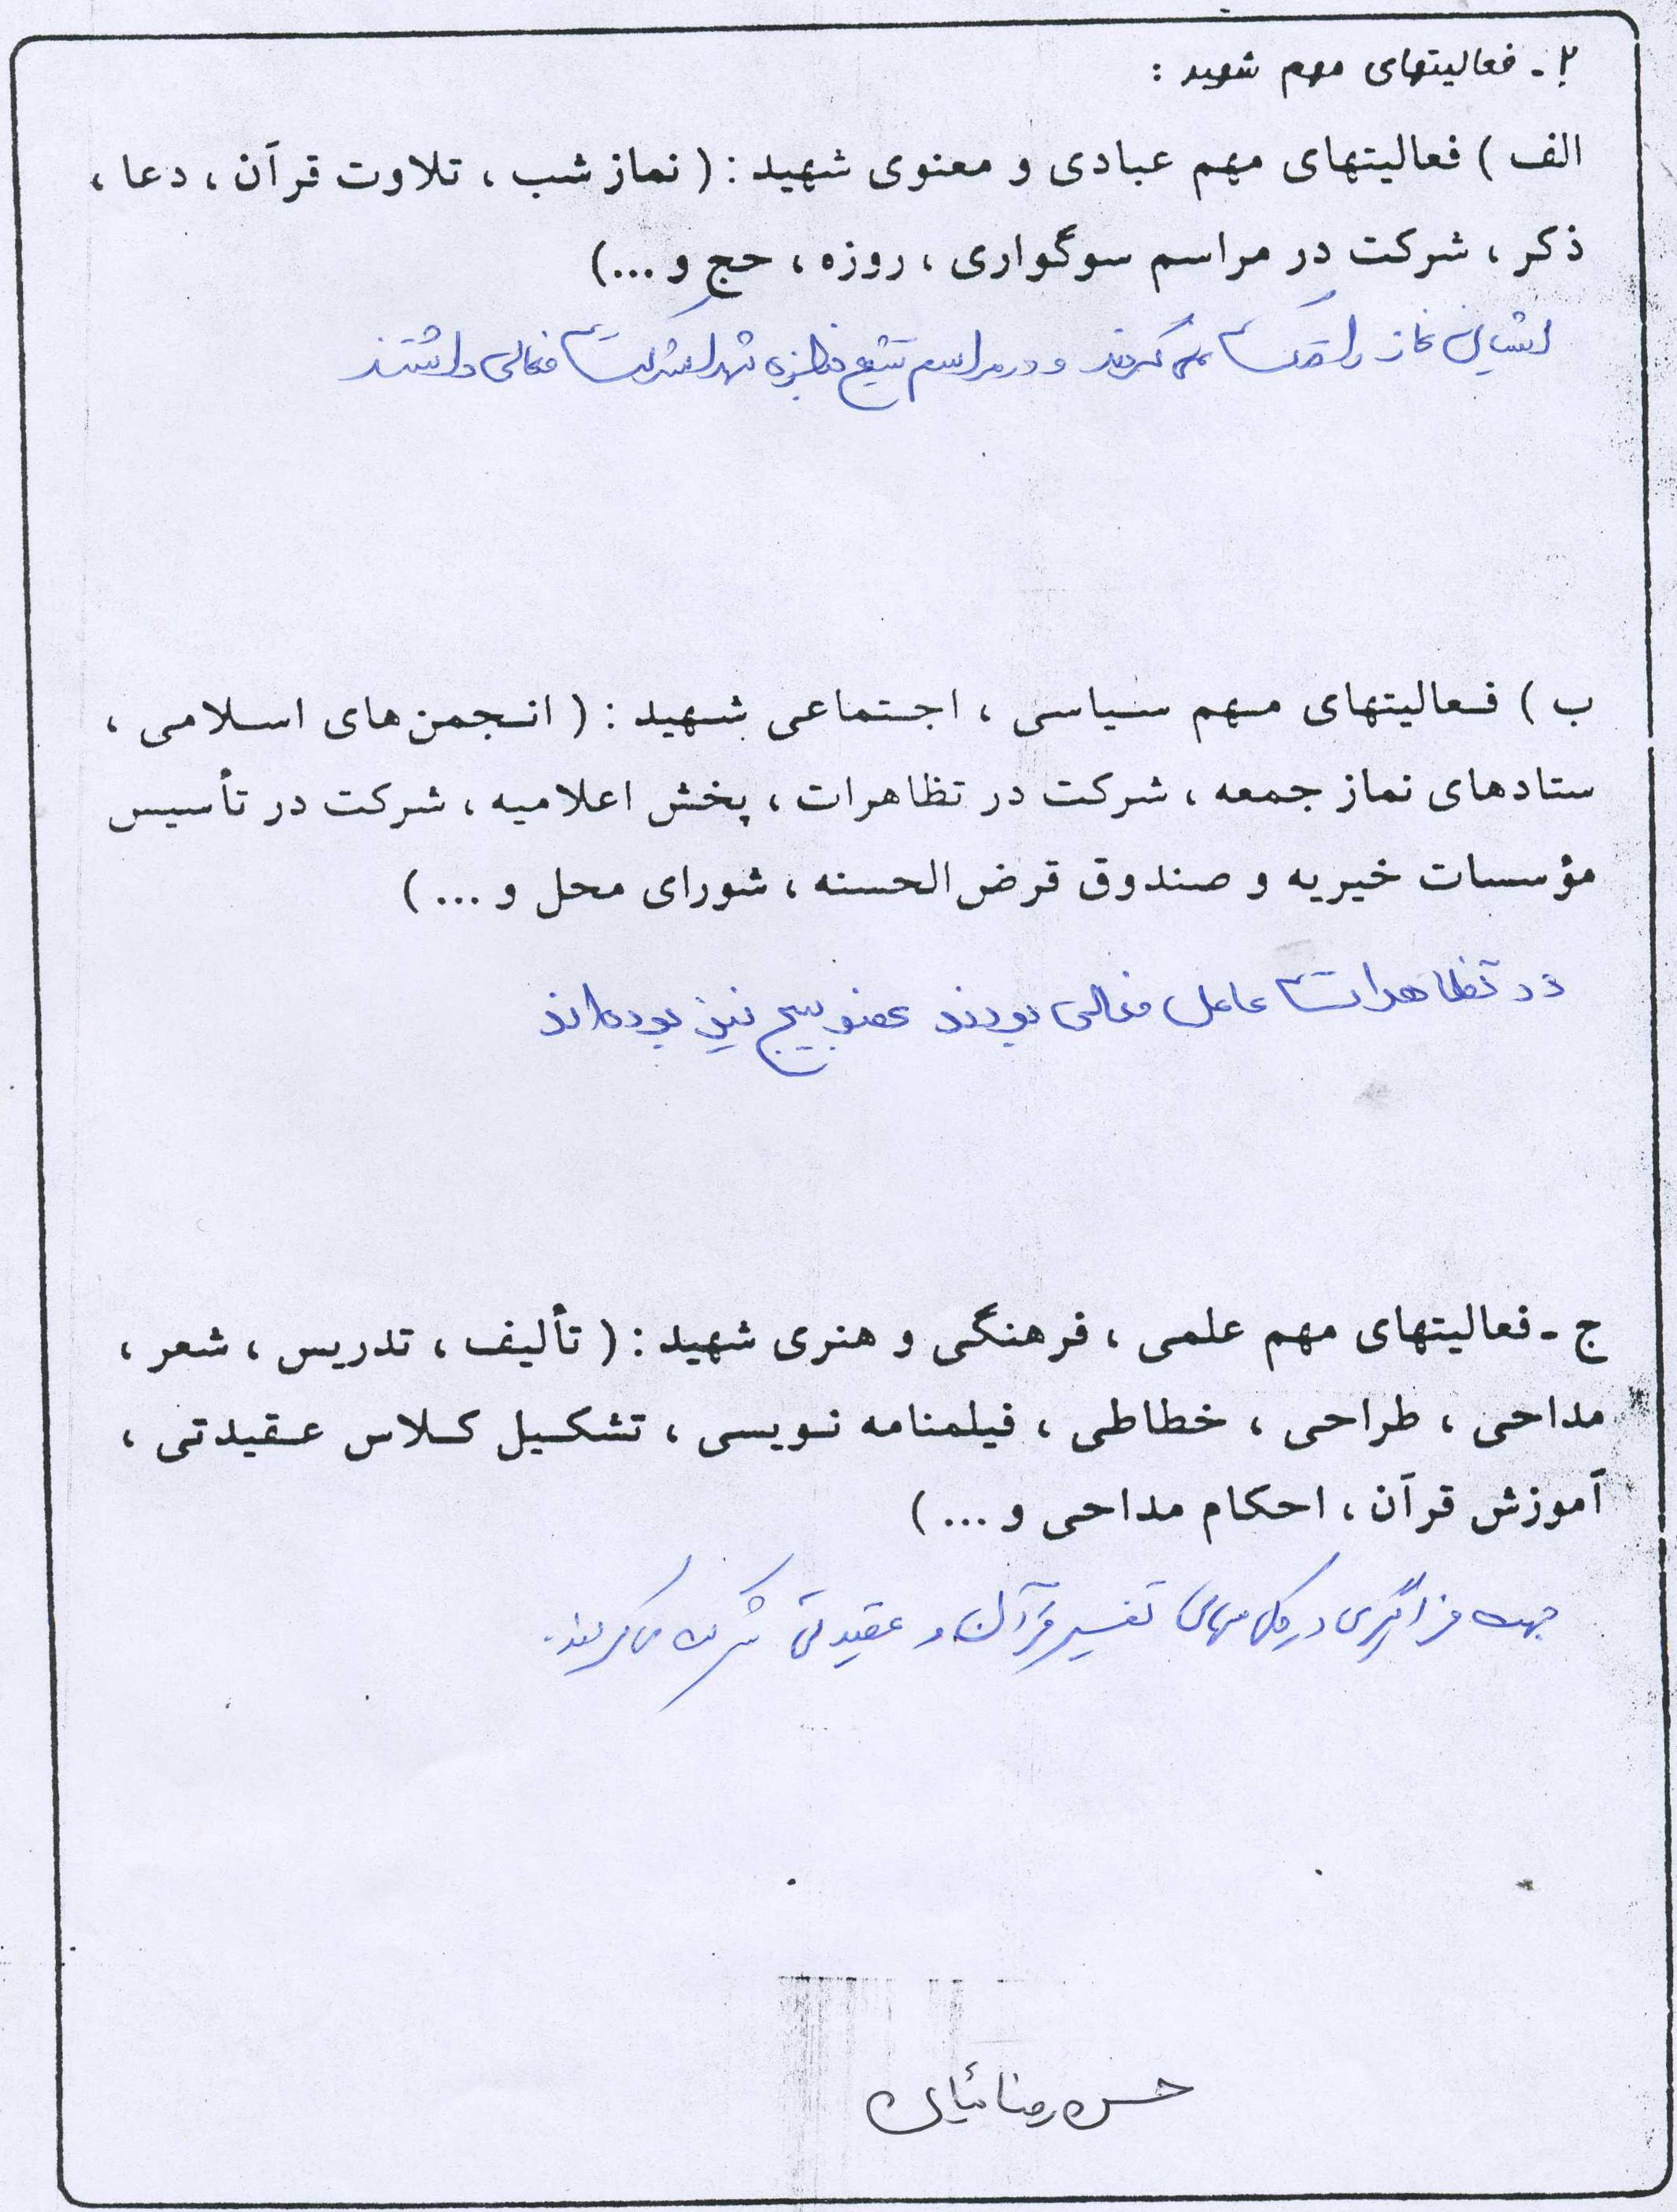 ۲ - فعالیتهای مهم شهید :
الف ) فعالیتهای مهم عبادی و معنوی شهید : ( نماز شب ، تلاوت قرآن ، دعا ،
ذکر ، شرکت در مراسم سوگواری ، روزه ، حج و ...)
ایشان نماز را می کردند و در مراسم تشیع جنازه شهدا شرکت فعالی داشتند
ب ) فعالیتهای مهم سیاسی ، اجتماعی شهید : ( انجمن های اسلامی ،
ستادهای نماز جمعه ، شرکت در تظاهرات ، پخش اعلامیه ، شرکت در تأسیس
مؤسسات خیریه و صندوق قرض الحسنه ، شورای محل و ... )
در تظاهرات عامل فعالی بودند عضو بسیج نیز بوده اند
ج - فعالیتهای مهم علمی ، فرهنگی و هنری شهید : ( تألیف ، تدریس ، شعر ،
مداحی ، طراحی ، خطاطی ، فیلمنامه نویسی ، تشکیل کلاس عقیدتی ،
آموزش قرآن ، احکام مداحی و ... )
جهت فراگیری در کلاسهای تفسیر قرآن و عقیدتی شرکت می کردند.
حسن رضائیان